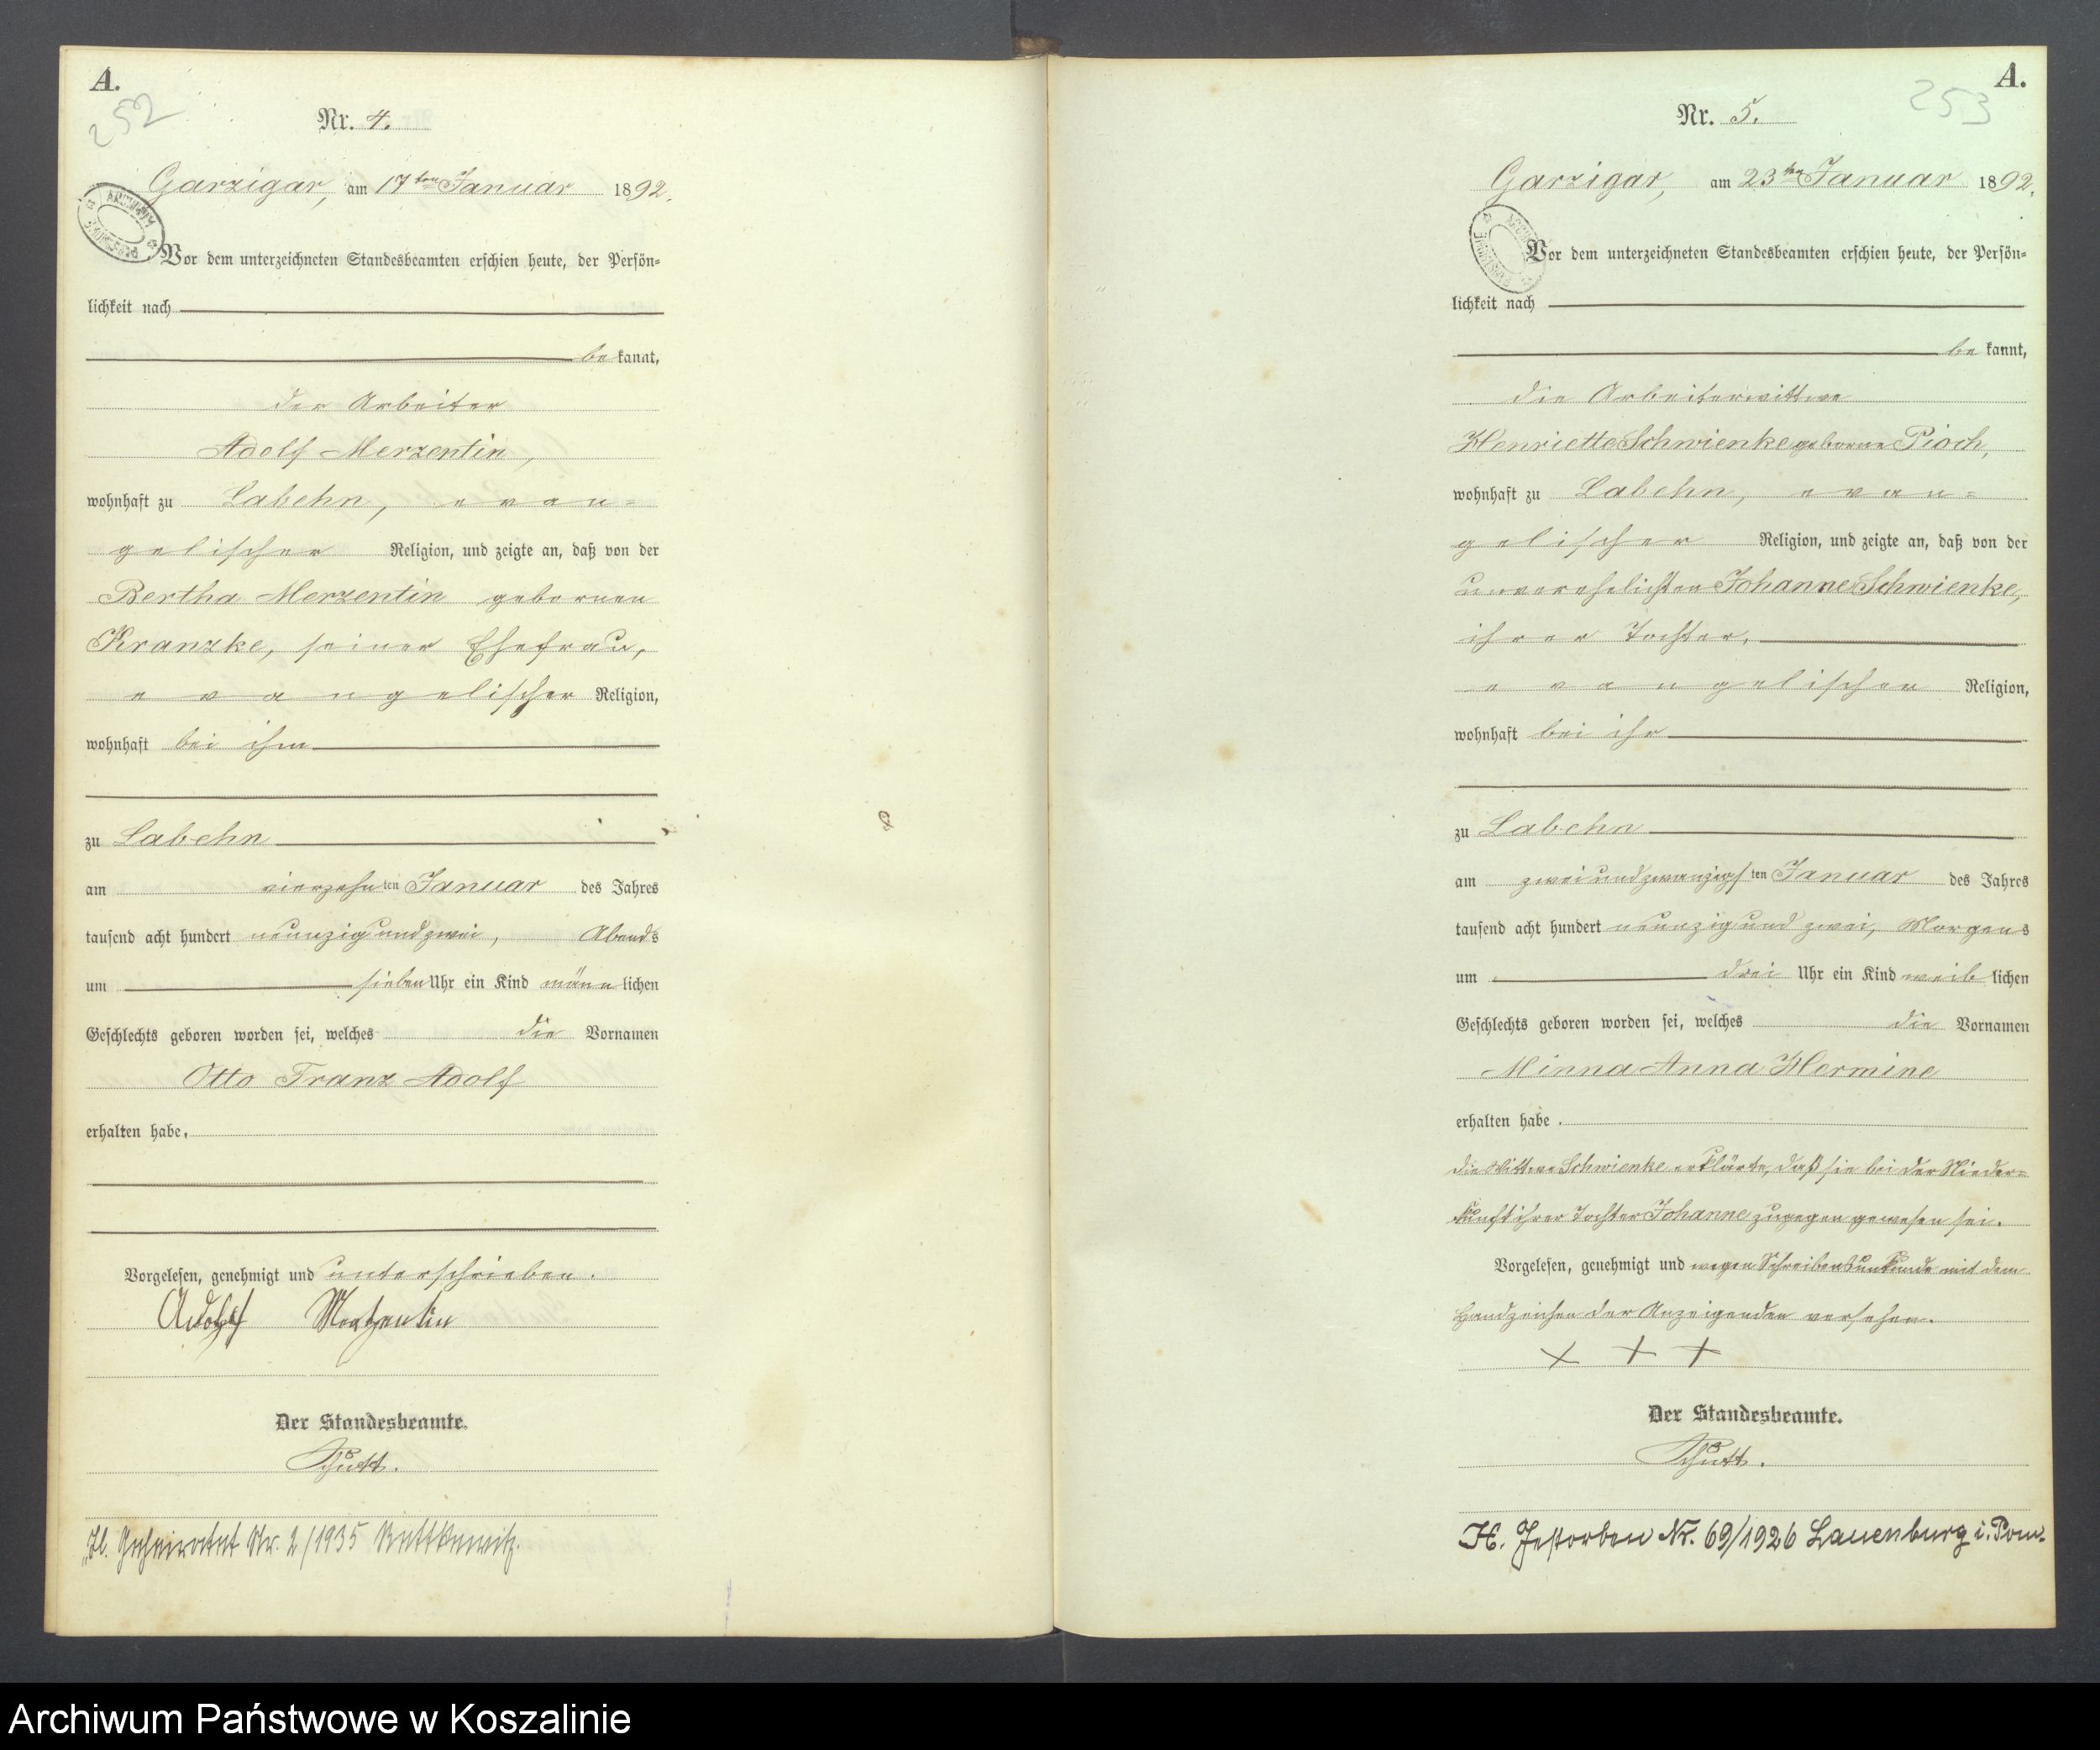 A.
252
Nr. 4.
Garzigar, am 17ten Januar 1892.
Vor dem unterzeichneten Standesbeamten erschien heute, der Persön=
lichkeit nach
bekannt,
der Arbeiter
Adolf Merzentin,
wohnhaft zu Labehn, evan=
gelischer Religion, und zeigte an, daß von der
Bertha Merzentin gebornen
Kranzke, seiner Ehefrau,
evangelischer Religion,
wohnhaft bei ihm
zu Labehn
am vierzehnten Januar des Jahres
tausend acht hundert neunzig und zwei, Abends
um sieben Uhr ein Kind männlichen
Geschlechts geboren worden sei, welches die Vornamen
Otto Franz Adolf
erhalten habe.
Vorgelesen, genehmigt und unterschrieben.
Adolf Merzentin
Der Standesbeamte.
Schütt.
Geheiratet Nr. 2/1935
A.
253
Nr. 5.
Garzigar, am 23ten Januar 1892.
Vor dem unterzeichneten Standesbeamten erschien heute, der Persön=
lichkeit nach
bekannt,
die Arbeiterwittwe
Henriette Schwienke geborne Pioch,
wohnhaft zu Labehn, evan=
gelischer Religion, und zeigte an, daß von der
unverehelichten Johanne Schwienke,
ihrer Tochter,
evangelischen Religion,
wohnhaft bei ihr
zu Labehn
am zwei und zwanzigsten Januar des Jahres
tausend acht hundert neunzig und zwei, Morgens
um drei Uhr ein Kind weiblichen
Geschlechts geboren worden sei, welches die Vornamen
Minna Anna Hermine
erhalten habe.
die Wittwe Schwienke erklärte, daß sie bei der Nieder=
kunft ihrer Tochter Johanne zugegen gewesen sei.
Vorgelesen, genehmigt und wegen Schreibensunkunde mit dem
Handzeichen der Anzeigenden versehen.
+ + +
Der Standesbeamte.
Schütt.
H. Gestorben Nr. 69/1926 Lauenburg i. Pom.
Archiwum Państwowe w Koszalinie